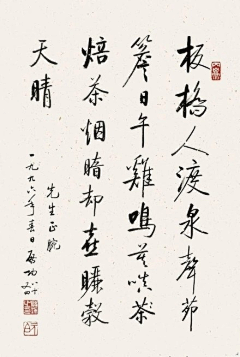 板橋人渡泉聲茆
簷日午雞鳴莫嗔茶
焙茶烟暗却喜曬穀
天晴
先生正腕
一九九六年春日启功